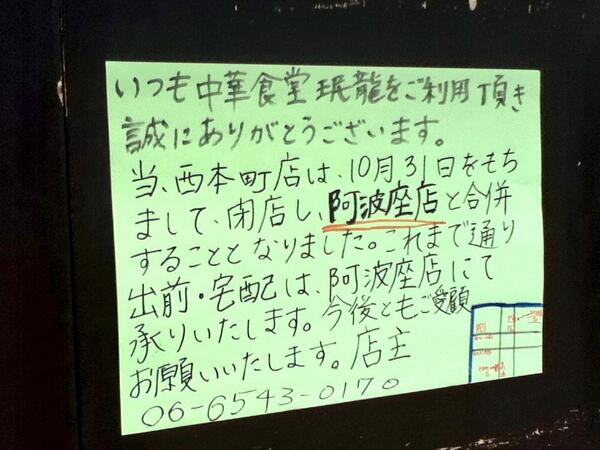 いつも中華食堂珉龍をご利用頂き
誠にありがとうございます。
当、西本町店は、10月31日をもち
まして、閉店し、阿波座店と合併
することとなりました。これまで通り
出前・宅配は、阿波座店にて
承りいたします。今後ともご愛顧
お願いいたします。店主
06-6543-0170